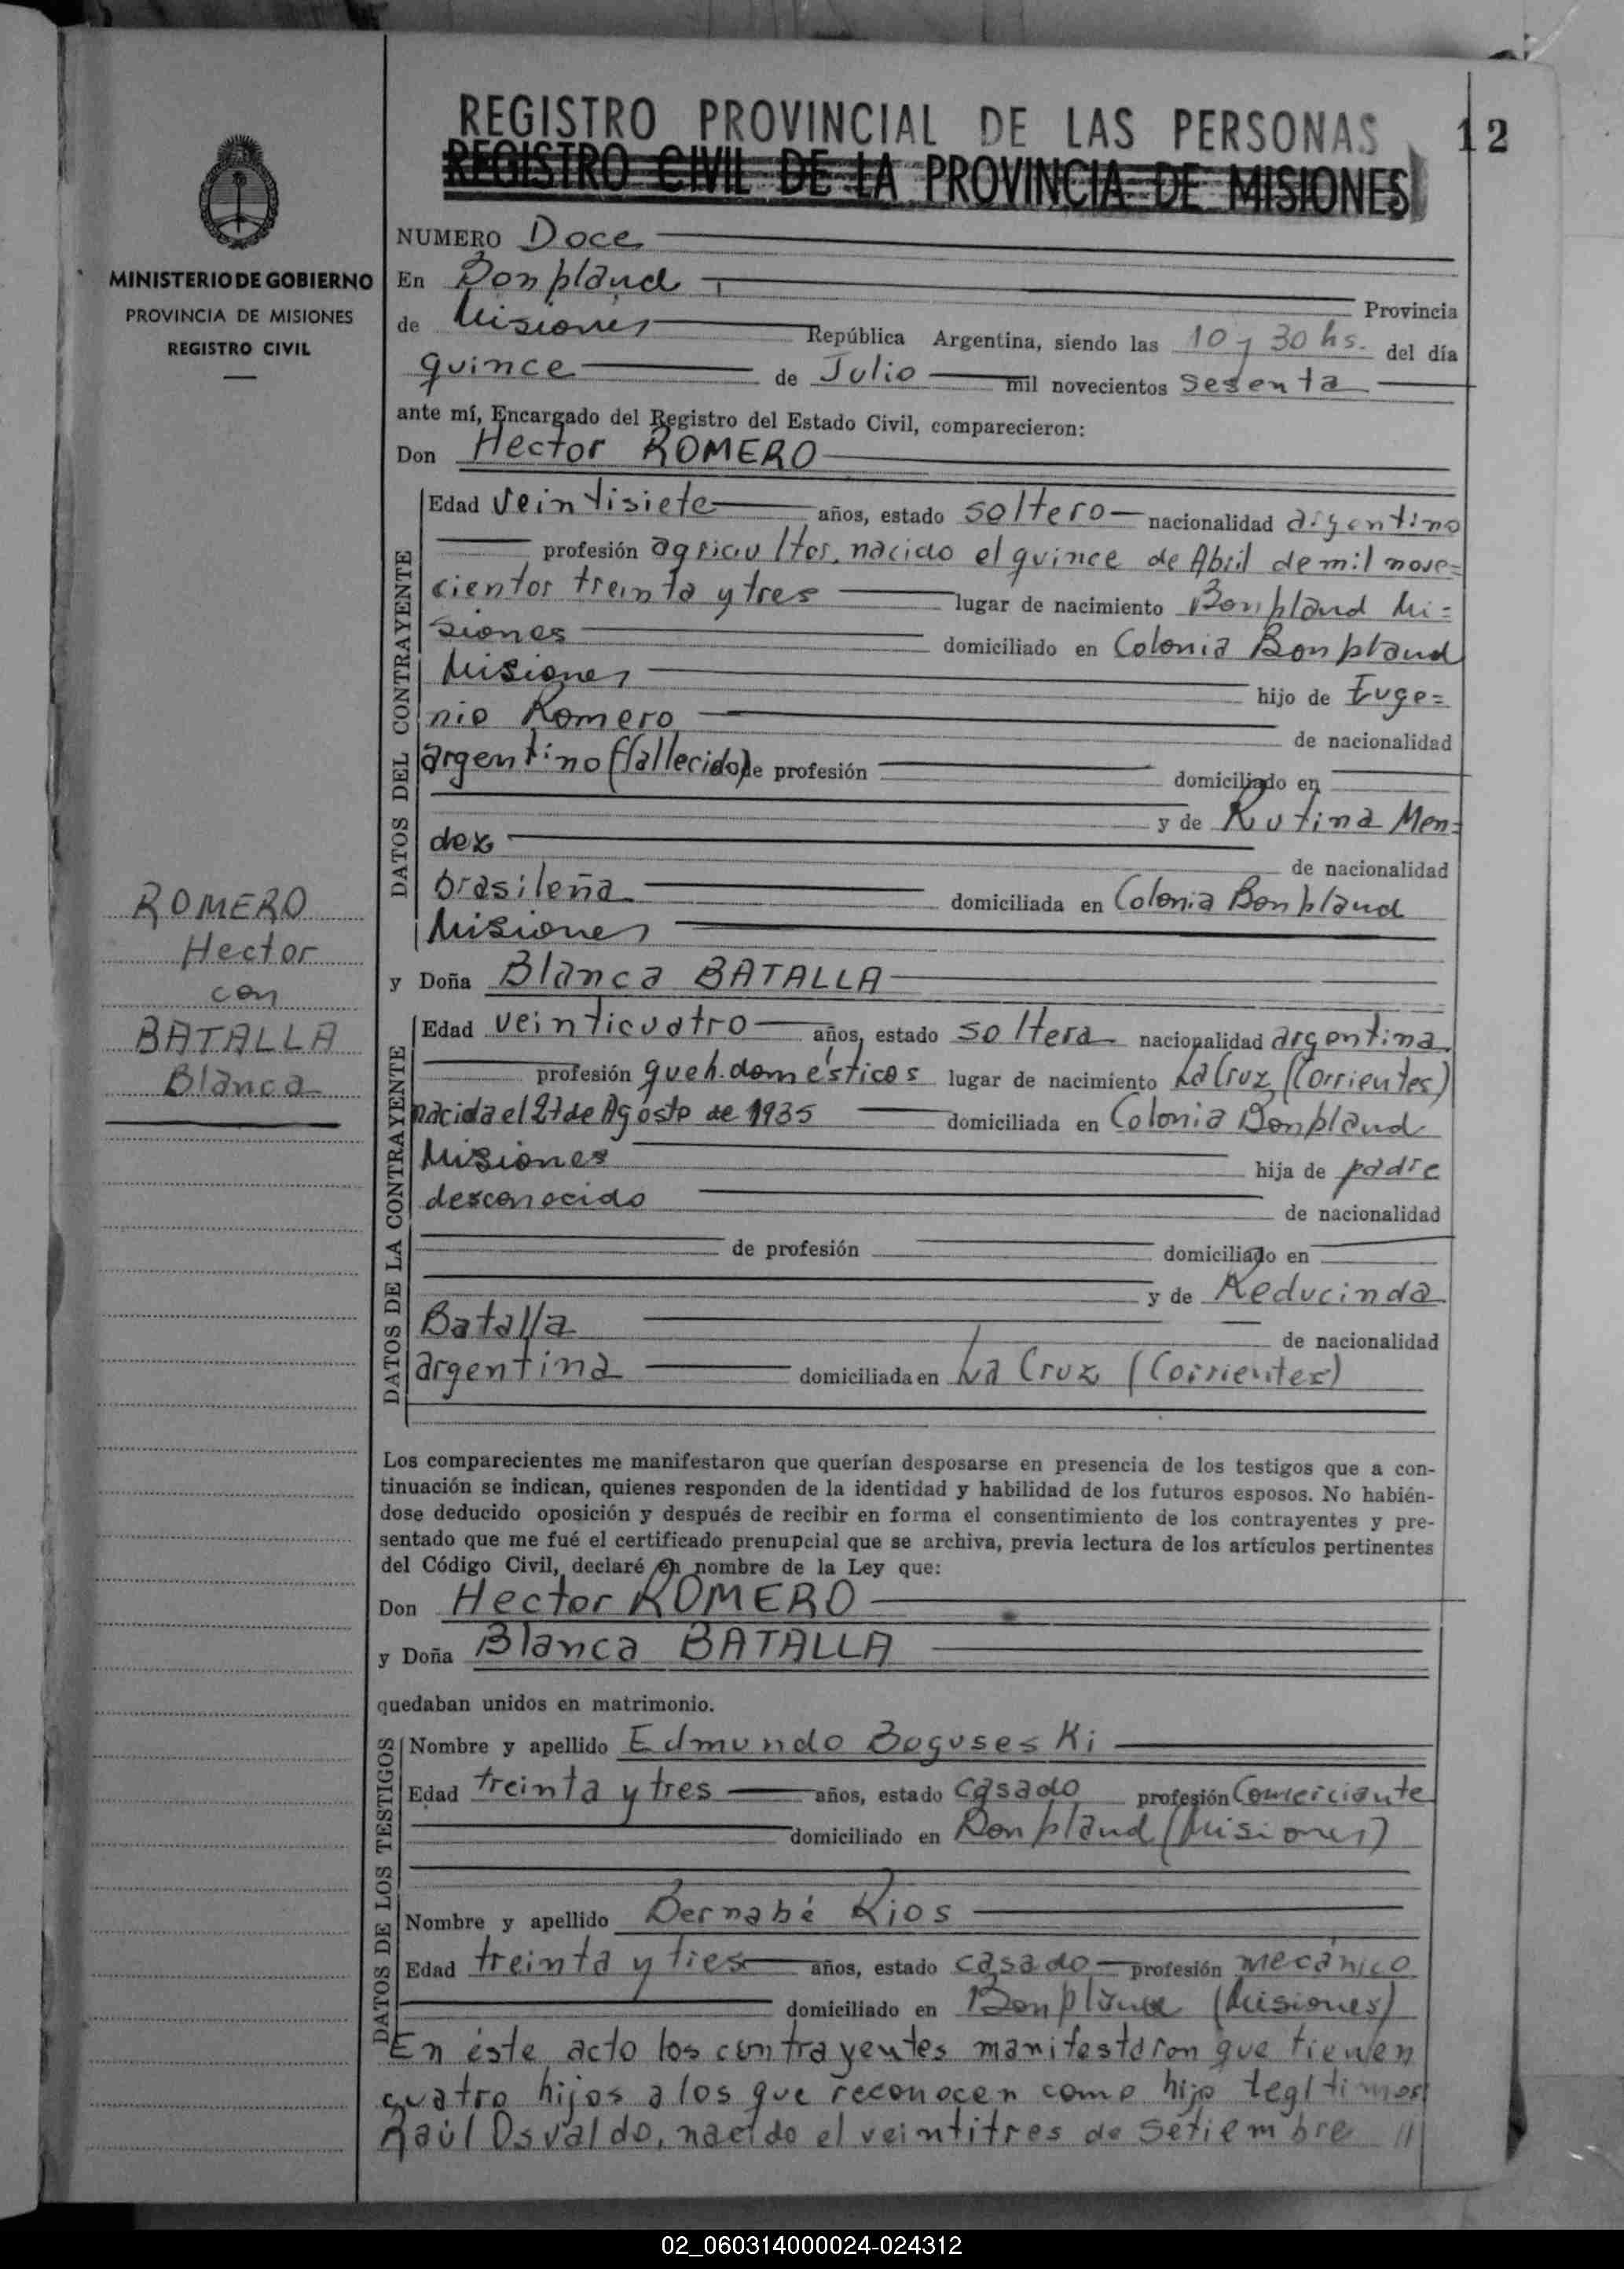 REGISTRO PROVINCIAL DE LAS PERSONAS
12
REGISTRO CIVIL DE LA PROVINCIA DE MISIONES
MINISTERIO DE GOBIERNO
PROVINCIA DE MISIONES
REGISTRO CIVIL
NUMERO Doce
En Bonpland
Provincia
de Misiones República Argentina, siendo las 10 y 30 hs. del día
quince de Julio mil novecientos Sesenta
ante mí, Encargado del Registro del Estado Civil, comparecieron:
Don Hector ROMERO
DATOS DEL CONTRAYENTE
Edad veintisiete años, estado soltero nacionalidad argentino
profesión agricultor, nacido el quince de Abril de mil nove=
cientos treinta y tres lugar de nacimiento Bonpland Mi=
siones domiciliado en Colonia Bonpland
Misiones hijo de Euge=
nio Romero de nacionalidad
argentino (fallecido) de profesión domiciliado en
y de Rufina Men=
dez de nacionalidad
brasileña domiciliada en Colonia Bonpland
Misiones
ROMERO
Hector
con
BATALLA
Blanca
y Doña Blanca BATALLA
DATOS DE LA CONTRAYENTE
Edad veinticuatro años, estado soltera nacionalidad argentina
profesión queh. domésticos lugar de nacimiento La Cruz (Corrientes)
nacida el 27 de Agosto de 1935 domiciliada en Colonia Bonpland
Misiones hija de padre
desconocido de nacionalidad
de profesión domiciliado en
y de Reducinda
Batalla de nacionalidad
argentina domiciliada en La Cruz (Corrientes)
Los comparecientes me manifestaron que querían desposarse en presencia de los testigos que a con-
tinuación se indican, quienes responden de la identidad y habilidad de los futuros esposos. No habién-
dose deducido oposición y después de recibir en forma el consentimiento de los contrayentes y pre-
sentado que me fué el certificado prenupcial que se archiva, previa lectura de los artículos pertinentes
del Código Civil, declaré en nombre de la Ley que:
Don Hector ROMERO
y Doña Blanca BATALLA
quedaban unidos en matrimonio.
DATOS DE LOS TESTIGOS
Nombre y apellido Edmundo Boguseski
Edad treinta y tres años, estado casado profesión Comerciante
domiciliado en Bonpland (Misiones)
Nombre y apellido Bernabé Rios
Edad treinta y tres años, estado casado profesión mecánico
domiciliado en Bonpland (Misiones)
En éste acto los contrayentes manifestaron que tienen
cuatro hijos a los que reconocen como hijo legítimos
Raúl Osvaldo, nacido el veintitres de Setiembre //
02_060314000024-024312